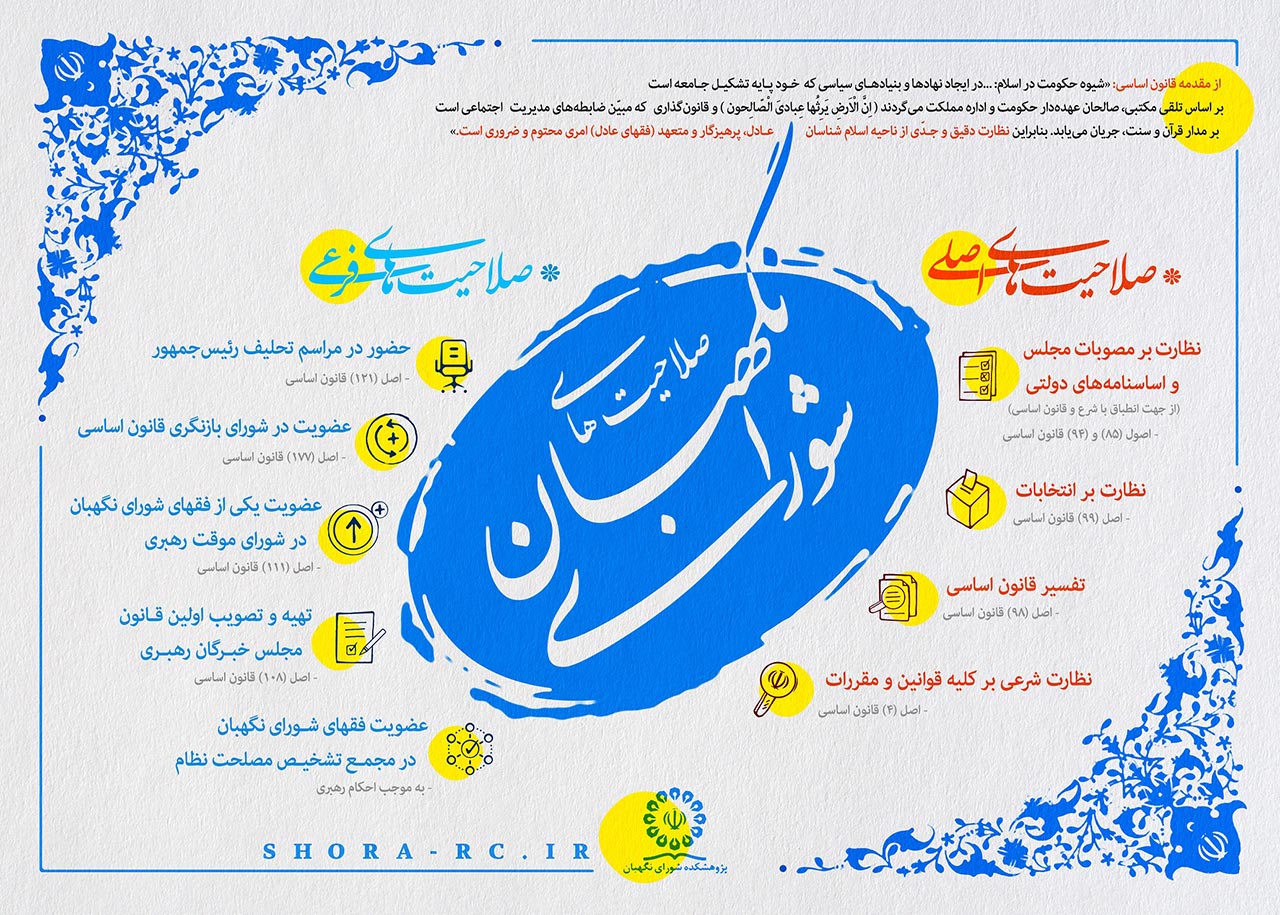 از مقدمه قانون اساسی: «شیوه حکومت در اسلام: ...در ایجاد نهادها و بنیادهـای سیاسی که خـود پـایه تشکیـل جـامعه است
بر اساس تلقی مکتبی، صالحان عهده‌دار حکومت و اداره مملکت می‌گردند (إِنَّ الْاَرضِ یَرِثُها عِبادیَ الْصّالِحون) و قانون‌گذاری که مبیّن ضابطه‌های مدیریت اجتماعی است
بر مدار قرآن و سنت، جریان می‌یابد. بنابراین نظارت دقیق و جـدّی از ناحیه اسلام شناسان عـادل، پرهیزگار و متعهد (فقهای عادل) امری محتوم و ضروری است.»
صلاحیت‌های شورای نگهبان
صلاحیت‌های اصلی
نظارت بر مصوبات مجلس
و اساسنامه‌های دولتی
(از جهت انطباق با شرع و قانون اساسی)
- اصول (۸۵) و (۹۴) قانون اساسی
نظارت بر انتخابات
- اصل (۹۹) قانون اساسی
تفسیر قانون اساسی
- اصل (۹۸) قانون اساسی
نظارت شرعی بر کلیه قوانین و مقررات
- اصل (۴) قانون اساسی
صلاحیت‌های فرعی
حضور در مراسم تحلیف رئیس‌جمهور
- اصل (۱۲۱) قانون اساسی
عضویت در شورای بازنگری قانون اساسی
- اصل (۱۷۷) قانون اساسی
عضویت یکی از فقهای شورای نگهبان
در شورای موقت رهبری
- اصل (۱۱۱) قانون اساسی
تهیه و تصویب اولین قـانون
مجلس خبـرگان رهبـری
- اصل (۱۰۸) قانون اساسی
عضویت فقهای شـورای نگهبان
در مجمـع تشخیـص مصلحت نظام
- به موجب احکام رهبری
پژوهشکده شورای نگهبان
SHORA-RC.IR